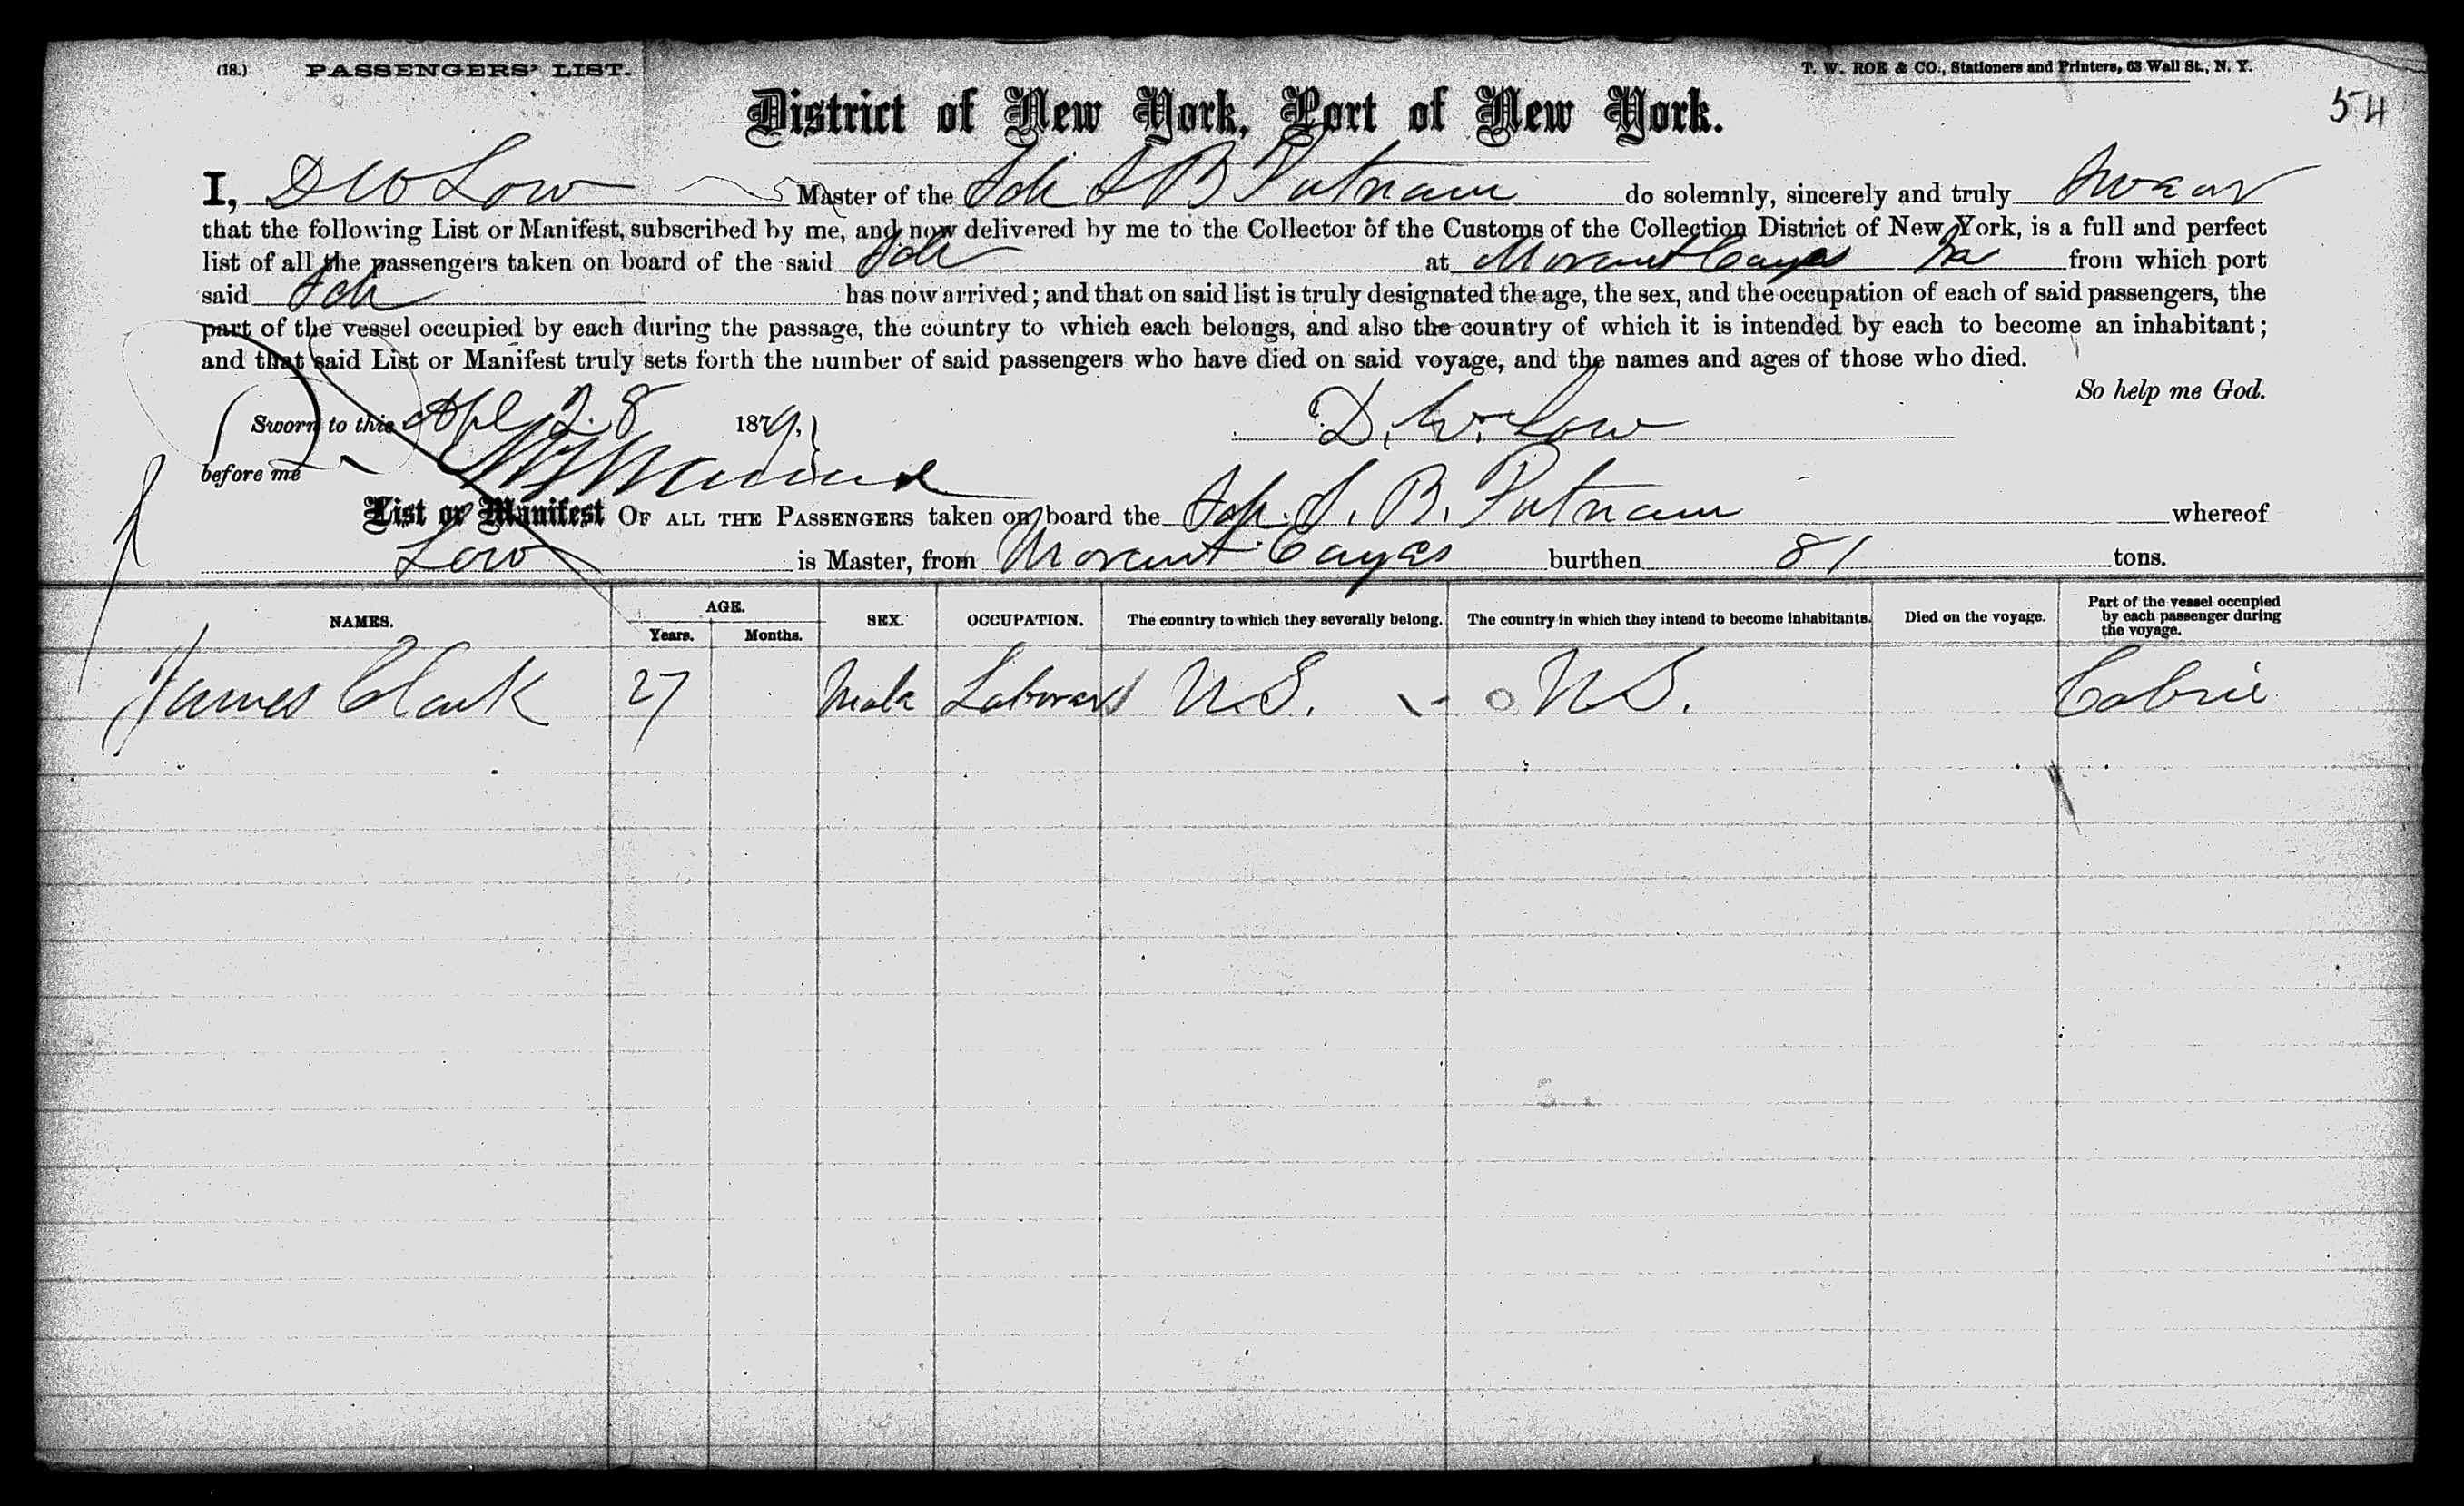 (18.) PASSENGERS' LIST. T. W. ROE & CO., Stationers and Printers, 63 Wall St., N. Y.
54
District of New York, Port of New York.
I, D W Low Master of the Sch S B Putnam do solemnly, sincerely and truly swear
that the following List or Manifest, subscribed by me, and now delivered by me to the Collector of the Customs of the Collection District of New York, is a full and perfect
list of all the passengers taken on board of the said Sch at Morant Cayes from which port
said Sch has now arrived; and that on said list is truly designated the age, the sex, and the occupation of each of said passengers, the
part of the vessel occupied by each during the passage, the country to which each belongs, and also the country of which it is intended by each to become an inhabitant;
and that said List or Manifest truly sets forth the number of said passengers who have died on said voyage, and the names and ages of those who died.
So help me God.
Sworn to this Apl 28 1879. D. W. Low
before me
List or Manifest OF ALL THE PASSENGERS taken on board the Sch. S. B. Putnam whereof
Low is Master, from Morant Cayes burthen 81 tons.
NAMES. AGE. Years. Months. SEX. OCCUPATION. The country to which they severally belong. The country in which they intend to become inhabitants. Died on the voyage. Part of the vessel occupied by each passenger during the voyage.
James Clark 27 Male Laborer U.S. U.S. Cabin